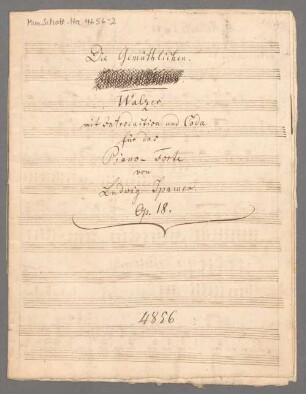 Mus.Schott.Ha 4656-2
Die Gemüthlichen.
Walzer
mit Introduction und Coda
für das
Piano-Forte
von
Ludwig Spamer
Op. 18.
4856